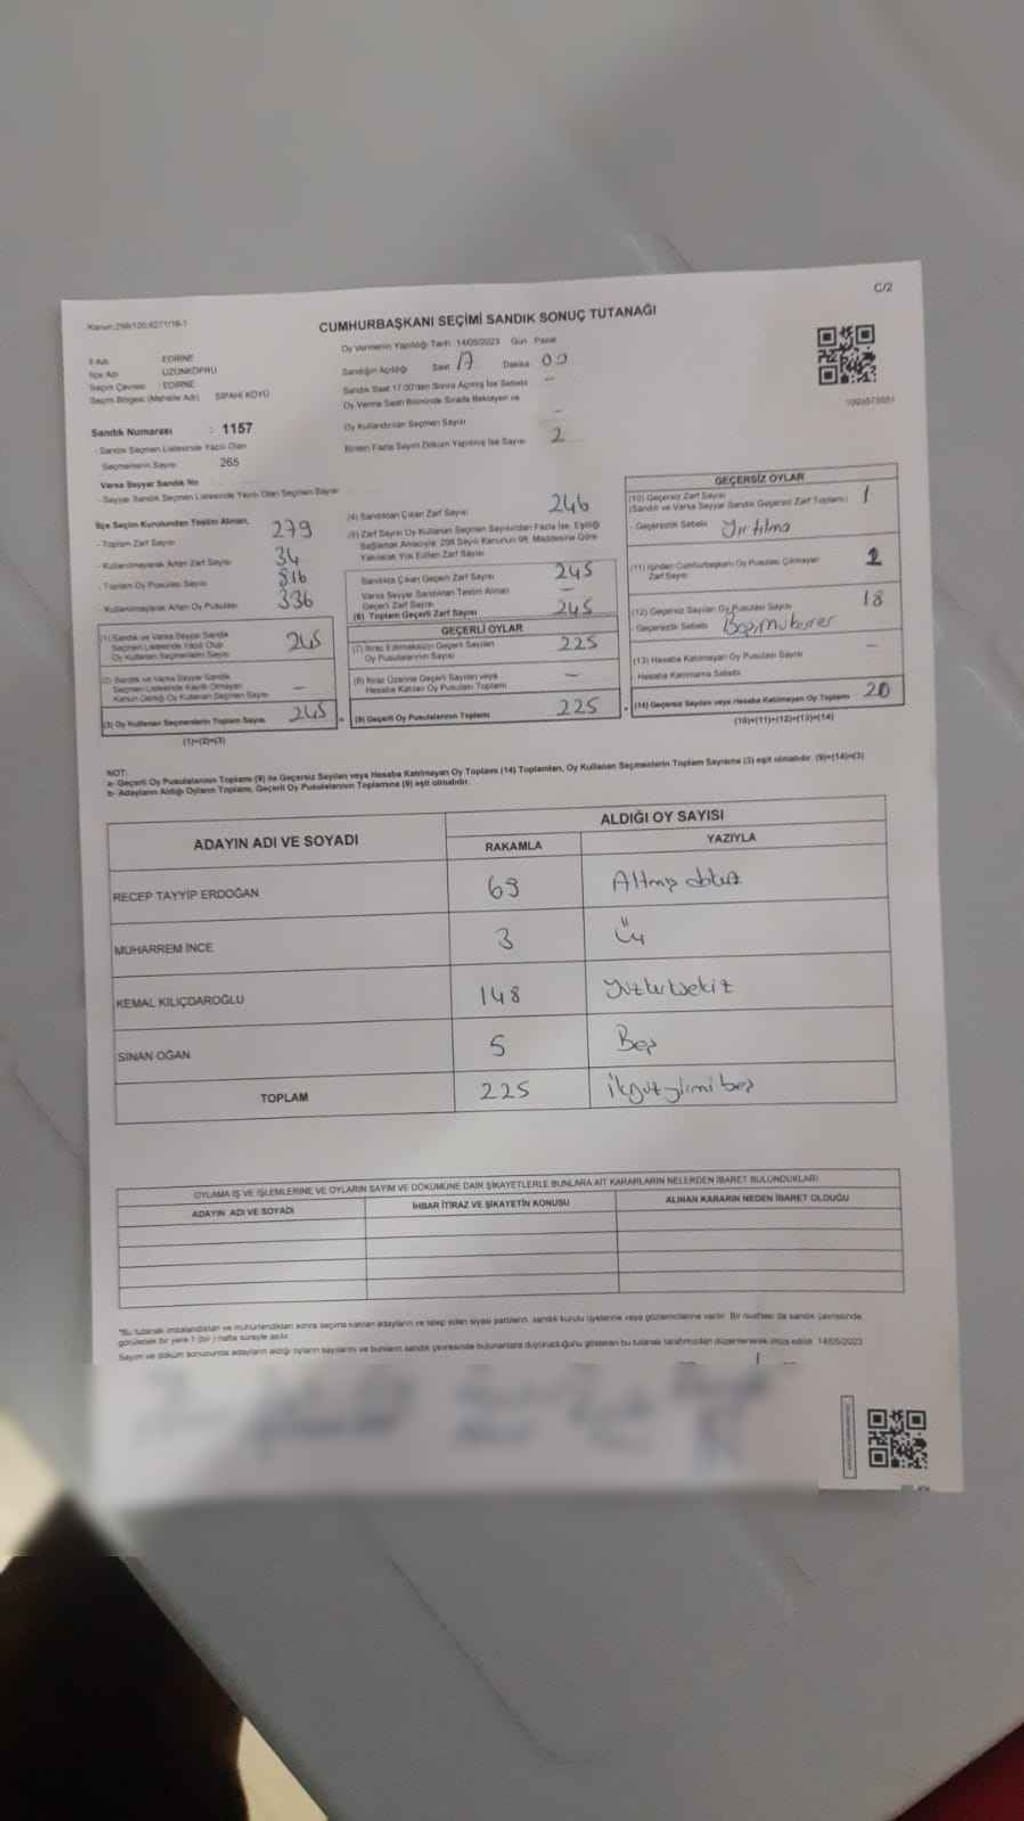 C/2
Kanun:298/105;6271/18-1
CUMHURBAŞKANI SEÇİMİ SANDIK SONUÇ TUTANAĞI
Oy Vermenin Yapıldığı Tarih 14/05/2023 Gün Pazar
İl Adı EDİRNE
İlçe Adı UZUNKÖPRÜ
Seçim Çevresi EDİRNE
Seçim Bölgesi (Mahalle Adı) SİPAHİ KÖYÜ
Sandığın Açıldığı Saat 17 Dakika 00
Sandık Saat 17.00'den Sonra Açılmış İse Sebebi -
Oy Verme Saati Bitiminde Sırada Bekleyen ve
Oy Kullandırılan Seçmen Sayısı -
Birden Fazla Sayım Döküm Yapılmış İse Sayısı 2
Sandık Numarası : 1157
- Sandık Seçmen Listesinde Yazılı Olan
Seçmenlerin Sayısı 265
Varsa Seyyar Sandık No
- Seyyar Sandık Seçmen Listesinde Yazılı Olan Seçmen Sayısı
İlçe Seçim Kurulundan Teslim Alınan,
- Toplam Zarf Sayısı 279
- Kullanılmayarak Artan Zarf Sayısı 34
- Toplam Oy Pusulası Sayısı
- Kullanılmayarak Artan Oy Pusulası 336
(1) Sandık ve Varsa Seyyar Sandık
Seçmen Listesinde Yazılı Olup
Oy Kullanan Seçmenlerin Sayısı 245
(2) Sandık ve Varsa Seyyar Sandık
Seçmen Listesinde Kayıtlı Olmayan
Kanun Gereği Oy Kullanan Seçmen Sayısı -
(3) Oy Kullanan Seçmenlerin Toplam Sayısı 245
(1)+(2)=(3)
(4) Sandıktan Çıkan Zarf Sayısı 246
(5) Zarf Sayısı Oy Kullanan Seçmen Sayısından Fazla İse, Eşitliği
Sağlamak Amacıyla, 298 Sayılı Kanunun 98. Maddesine Göre
Yakılarak Yok Edilen Zarf Sayısı
Sandıkta Çıkan Geçerli Zarf Sayısı 245
Varsa Seyyar Sandıktan Teslim Alınan
Geçerli Zarf Sayısı -
(6) Toplam Geçerli Zarf Sayısı 245
GEÇERLİ OYLAR
(7) İtiraz Edilmeksizin Geçerli Sayılan
Oy Pusulalarının Sayısı 225
(8) İtiraz Üzerine Geçerli Sayılan veya
Hesaba Katılan Oy Pusulası Toplamı -
(9) Geçerli Oy Pusulalarının Toplamı 225
GEÇERSİZ OYLAR
(10) Geçersiz Zarf Sayısı
(Sandık ve Varsa Seyyar Sandık Geçersiz Zarf Toplamı) 1
- Geçersizlik Sebebi Yırtılma
(11) İçinden Cumhurbaşkanı Oy Pusulası Çıkmayan
Zarf Sayısı
(12) Geçersiz Sayılan Oy Pusulası Sayısı 18
Geçersizlik Sebebi
(13) Hesaba Katılmayan Oy Pusulası Sayısı -
Hesaba Katılmama Sebebi
(14) Geçersiz Sayılan veya Hesaba Katılmayan Oy Toplamı 20
(10)+(11)+(12)+(13)=(14)
NOT:
a- Geçerli Oy Pusulalarının Toplamı (9) ile Geçersiz Sayılan veya Hesaba Katılmayan Oy Toplamı (14) Toplamları, Oy Kullanan Seçmenlerin Toplam Sayısına (3) eşit olmalıdır. (9)+(14)=(3)
b- Adayların Aldığı Oyların Toplamı, Geçerli Oy Pusulalarının Toplamına (9) eşit olmalıdır.
ADAYIN ADI VE SOYADI
ALDIĞI OY SAYISI
RAKAMLA YAZIYLA
RECEP TAYYİP ERDOĞAN 69 Altmış dokuz
MUHARREM İNCE 3 Üç
KEMAL KILIÇDAROĞLU 148
SİNAN OĞAN 5 Beş
TOPLAM 225 ikiyüz yirmi beş
OYLAMA İŞ VE İŞLEMLERİNE VE OYLARIN SAYIM VE DÖKÜMÜNE DAİR ŞİKAYETLERLE BUNLARA AİT KARARLARIN NELERDEN İBARET BULUNDUKLARI
ADAYIN ADI VE SOYADI İHBAR İTİRAZ VE ŞİKAYETİN KONUSU ALINAN KARARIN NEDEN İBARET OLDUĞU
"Bu tutanak imzalandıktan ve mühürlendikten sonra seçime katılan adayların ve talep eden siyasi partilerin, sandık kurulu üyelerine veya gözlemcilerine verilir. Bir nüshası da sandık çevresinde
görülecek bir yere 1 (bir) hafta süreyle asılır.
Sayım ve döküm sonucunda adayların aldığı oyların sayılarını ve bunların sandık çevresinde bulunanlara duyurulduğunu gösteren bu tutanak tarafımızdan düzenlenerek imza edildi. 14/05/2023